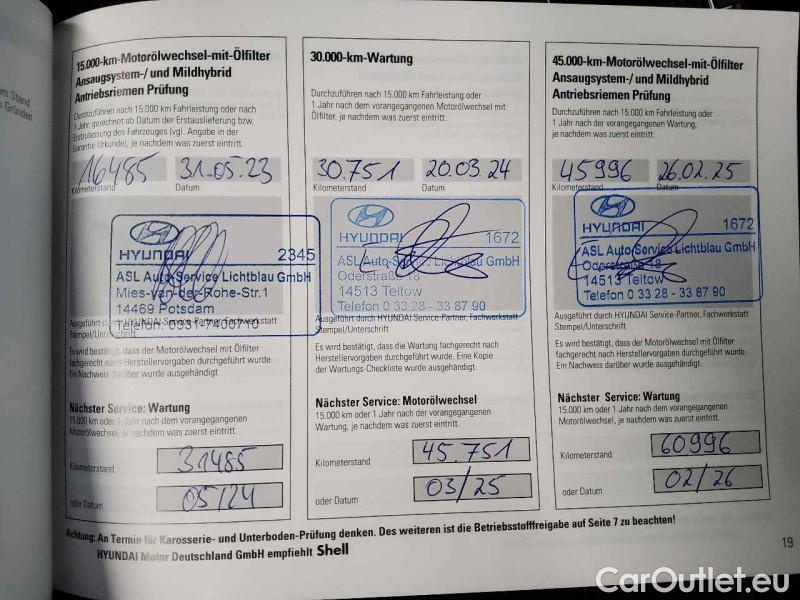 em Stand
n Gründen
15.000-km-Motorölwechsel-mit-Ölfilter
Ansaugsystem-/ und Mildhybrid
Antriebsriemen Prüfung
Durchzuführen nach 15.000 km Fahrleistung oder nach
1 Jahr, gerechnet ab Datum der Erstauslieferung bzw.
Erstzulassung des Fahrzeuges (vgl. Angabe in der
Garantie-Urkunde), je nachdem was zuerst eintritt.
16485 31.05.23
Kilometerstand Datum
HYUNDAI 2345
ASL Auto-Service Lichtblau GmbH
Mies-van-der-Rohe-Str.1
14469 Potsdam
Telefon: 0331-7400710
Ausgeführt durch HYUNDAI Service-Partner, Fachwerkstatt
Stempel/Unterschrift
Es wird bestätigt, dass der Motorölwechsel mit Ölfilter
fachgerecht nach Herstellervorgaben durchgeführt wurde.
Ein Nachweis darüber wurde ausgehändigt.
Nächster Service: Wartung
15.000 km oder 1 Jahr nach dem vorangegangenen
Motorölwechsel, je nachdem was zuerst eintritt.
Kilometerstand 31485
oder Datum 05/24
30.000-km-Wartung
Durchzuführen nach 15.000 km Fahrleistung oder
1 Jahr nach dem vorangegangenen Motorölwechsel mit
Ölfilter, je nachdem was zuerst eintritt.
30.751 20.03.24
Kilometerstand Datum
HYUNDAI 1672
ASL Auto-Service Lichtblau GmbH
Oderstraße 18
14513 Teltow
Telefon 0 33 28 - 33 87 90
Ausgeführt durch HYUNDAI Service-Partner, Fachwerkstatt
Stempel/Unterschrift
Es wird bestätigt, dass die Wartung fachgerecht nach
Herstellervorgaben durchgeführt wurde. Eine Kopie
der Wartungs-Checkliste wurde ausgehändigt.
Nächster Service: Motorölwechsel
15.000 km oder 1 Jahr nach der vorangegangenen
Wartung, je nachdem was zuerst eintritt.
Kilometerstand 45.751
oder Datum 03/25
45.000-km-Motorölwechsel-mit-Ölfilter
Ansaugsystem-/ und Mildhybrid
Antriebsriemen Prüfung
Durchzuführen nach 15.000 km Fahrleistung oder
1 Jahr nach der vorangegangenen Wartung,
je nachdem was zuerst eintritt.
45996 26.02.25
Kilometerstand Datum
HYUNDAI 1672
ASL Auto-Service Lichtblau GmbH
Oderstraße 18
14513 Teltow
Telefon 0 33 28 - 33 87 90
Ausgeführt durch HYUNDAI Service-Partner, Fachwerkstatt
Stempel/Unterschrift
Es wird bestätigt, dass der Motorölwechsel mit Ölfilter
fachgerecht nach Herstellervorgaben durchgeführt wurde.
Ein Nachweis darüber wurde ausgehändigt.
Nächster Service: Wartung
15.000 km oder 1 Jahr nach dem vorangegangenen
Motorölwechsel, je nachdem was zuerst eintritt.
Kilometerstand 60996
oder Datum 02/26
Achtung: An Termin für Karosserie- und Unterboden-Prüfung denken. Des weiteren ist die Betriebsstofffreigabe auf Seite 7 zu beachten!
HYUNDAI Motor Deutschland GmbH empfiehlt Shell
19
CarOutlet.eu